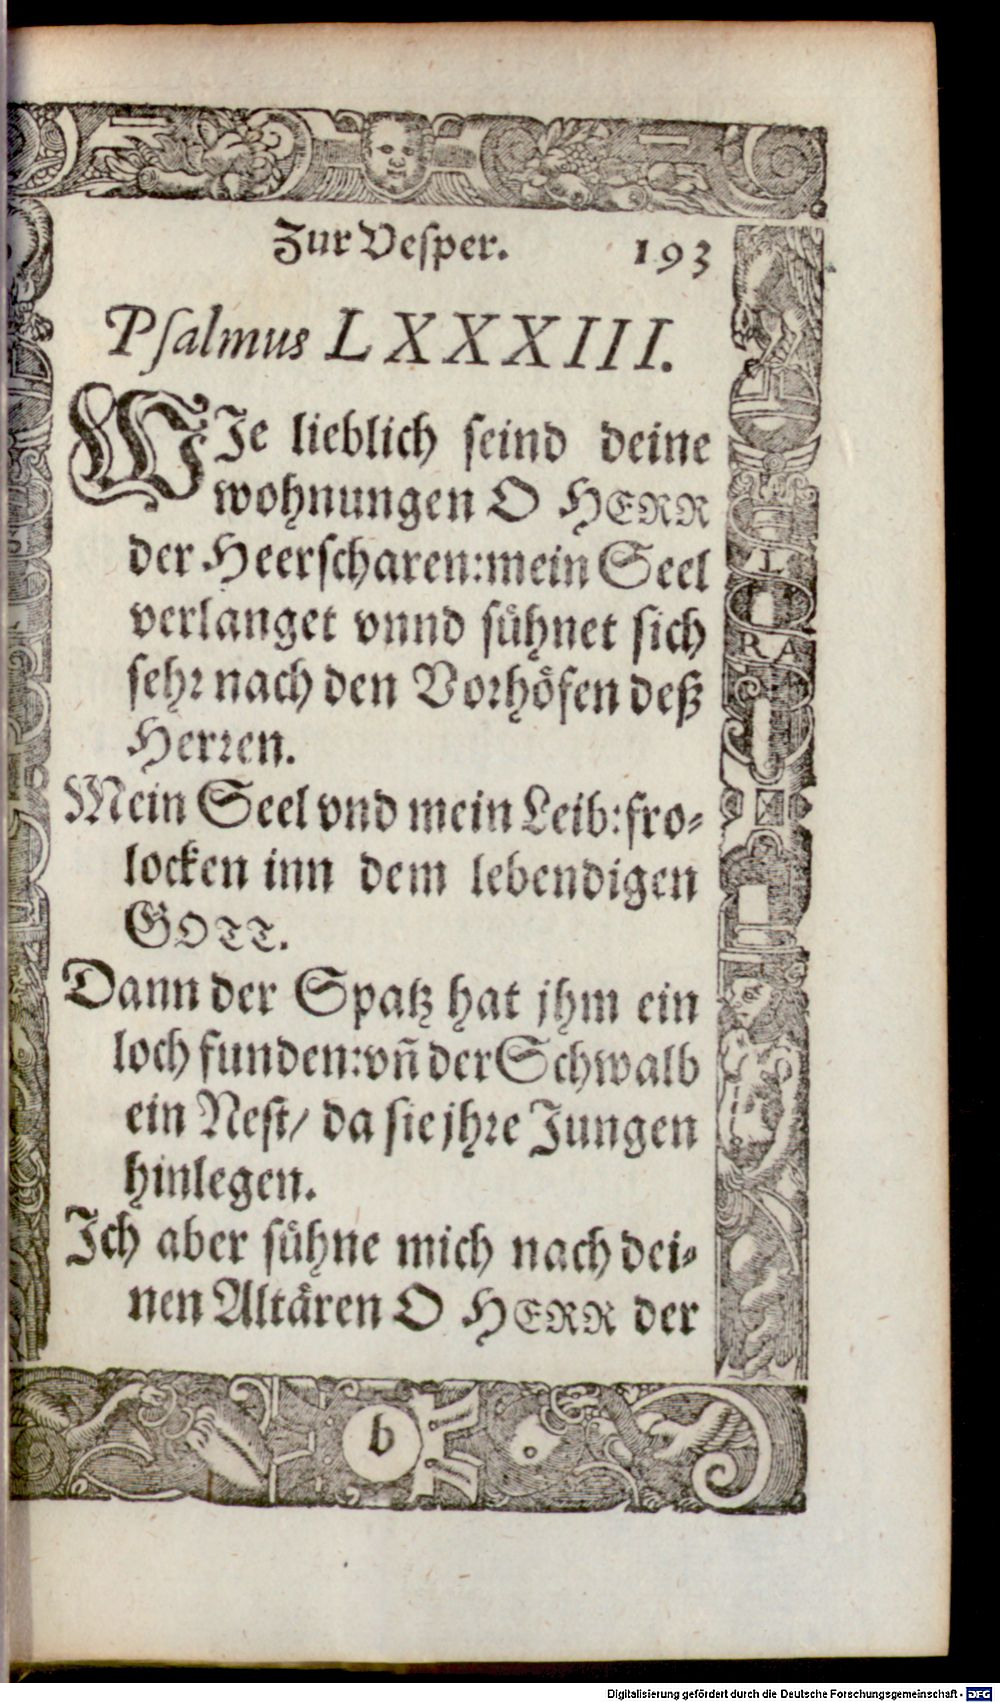 Zur Vesper. 193
Psalmus LXXXIII.
WIe lieblich seind deine
wohnungen O HERR
der Heerscharen:mein Seel
verlanget vnnd sühnet sich
sehr nach den Vorhöfen deß
Herren.
Mein Seel vnd mein Leib:fro-
locken inn dem lebendigen
GOTT.
Dann der Spatz hat jhm ein
loch funden:vñ der Schwalb
ein Nest/ da sie jhre Jungen
hinlegen.
Ich aber sühne mich nach dei-
nen Altären O HERR der
b
L
RA
Digitalisierung gefördert durch die Deutsche Forschungsgemeinschaft - DFG